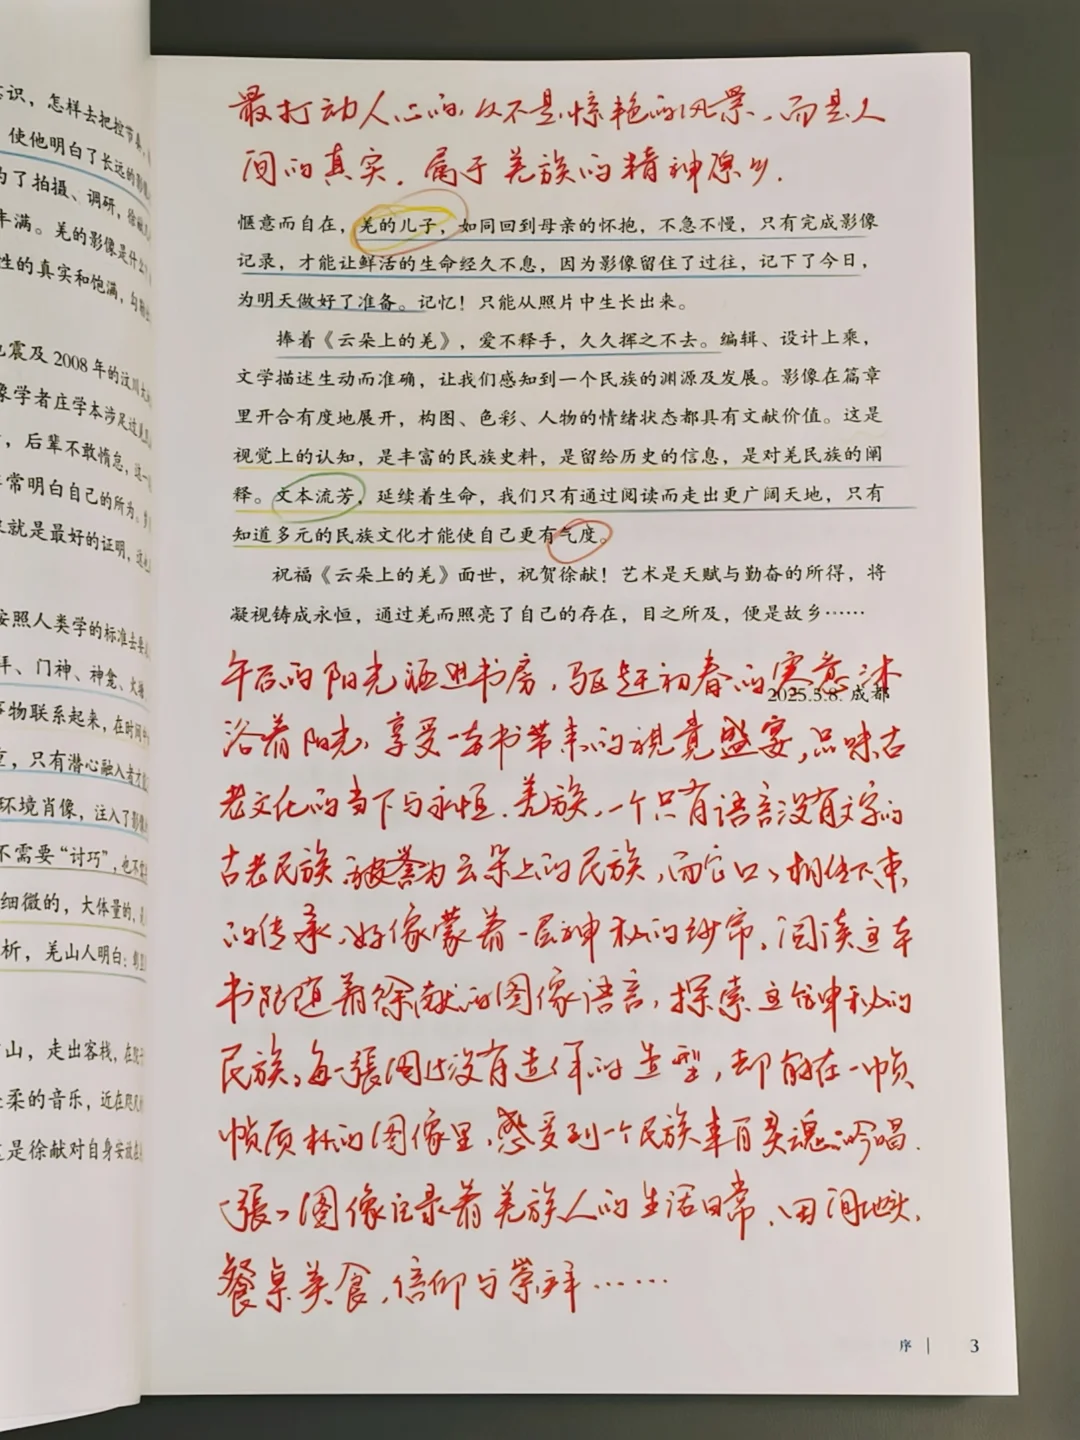 识，怎样去把控节奏，
使他明白了长远的影像
为了拍摄、调研，徐献
丰满。羌的影像是什么
性的真实和饱满，勾勒
地震及2008年的汶川大
象学者庄学本涉足过
，后辈不敢惰怠，这一
常明白自己的所为。
就是最好的证明，这
按照人类学的标准去要
拜、门神、神龛、火塘
事物联系起来，在时间
重，只有潜心融入者才
环境肖像，注入了影像
不需要“讨巧”，也不
细微的，大体量的，
析，羌山人明白：
山，走出客栈，在院
柔的音乐，近在咫尺
这是徐献对自身安放在
最打动人心的，从不是惊艳的风景，而是人
间的真实，属于羌族的精神原乡。
惬意而自在，羌的儿子，如同回到母亲的怀抱，不急不慢，只有完成影像
记录，才能让鲜活的生命经久不息，因为影像留住了过往，记下了今日，
为明天做好了准备。记忆！只能从照片中生长出来。
捧着《云朵上的羌》，爱不释手，久久挥之不去。编辑、设计上乘，
文学描述生动而准确，让我们感知到一个民族的渊源及发展。影像在篇章
里开合有度地展开，构图、色彩、人物的情绪状态都具有文献价值。这是
视觉上的认知，是丰富的民族史料，是留给历史的信息，是对羌民族的阐
释。文本流芳，延续着生命，我们只有通过阅读而走出更广阔天地，只有
知道多元的民族文化才能使自己更有气度。
祝福《云朵上的羌》面世，祝贺徐献！艺术是天赋与勤奋的所得，将
凝视铸成永恒，通过羌而照亮了自己的存在，目之所及，便是故乡……
2025.5.8. 成都
午后的阳光洒进书房，驱赶初春的寒意沐
浴着阳光，享受一本书带来的视觉盛宴，品味古
老文化的当下与永恒。羌族，一个只有语言没有文字的
古老民族被誉为云朵上的民族，而它口口相传下来
的传承，好像蒙着一层神秘的纱帘。阅读这本
书跟随着徐献的图像语言，探索这个神秘的
民族，每一張图片没有造作的造型，却能在一帧
帧质朴的图像里，感受到一个民族来自灵魂的吟唱。
一張張图像记录着羌族人的生活日常、田间地头，
餐桌美食，信仰与崇拜……
序 3